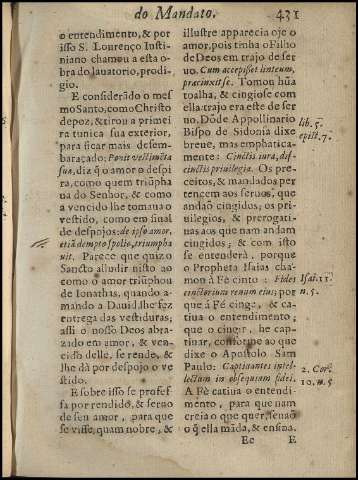 do Mandato. 431
o entendimento, & por
isso S. Lourenço Iusti-
niano chamou a esta o-
bra do lauatorio, prodi-
gio.
E considerãdo o mes
mo Santo, como Christo
depoz, & tirou a primei
ra tunica sua exterior,
para ficar mais desem-
baraçado: Ponit vestimẽta
sua, diz q̃ o amor o despi
ra, como quem triũpha
ua do Senhor, & como
a vencido lhe tomaua o
vestido, como em final
de despojos: de ipso amor,
etiã dempto spolio, triumpha
uit. Parece que quiz o
Sancto alludir nisto ao
como o amor triũphou
de Ionathas, quando a-
mando a Dauid lhe fez
entrega das vestiduras;
assi o nosso Deos abra-
zado em amor, & ven-
cido delle, se rende, &
lhe dà por despojo o ve
stido.
E sobre isso se profes-
sa por rendido, & seruo
de seu amor, para que
se visse, quam nobre, &
illustre apparecia oje o
amor, pois tinha o Filho
de Deos em trajo de ser
uo. Cum accepisset linteum,
præcinxit se. Tomou hũa
toalha, & cingiose com
ella trajo era este de ser
uo. Dõde Appollinario
Bispo de Sidonia dixe
breue, mas emphatica-
mente: Cinctis iura, dis-
cinctis priuilegia. Os pre-
ceitos, & mandados per
tencem aos seruos, que
andaõ cingidos; os pri-
uilegios, & prerogati-
nas aos que nam andam
cingidos; & com isto
se entenderà, porque
o Propheta Isaias cha-
mon à Fé cinto: Fides
cinctorium renum eius; por
que à Fé cinge, & ca-
tiua o entendimento;
que o cingir, he cap-
tiuar, conforme ao que
dixe o Apostolo Sam
Paulo: Captiuantes intel-
lectum in obsequium fidei.
A Fè catiua o entendi-
mento, para que nam
creia o que quer, senaõ
o q̃ ella mãda, & ensina.
Ee E
lib. 5.
epist. 7.
Isai. 11
n. 5.
2. Cor.
10. n. 5